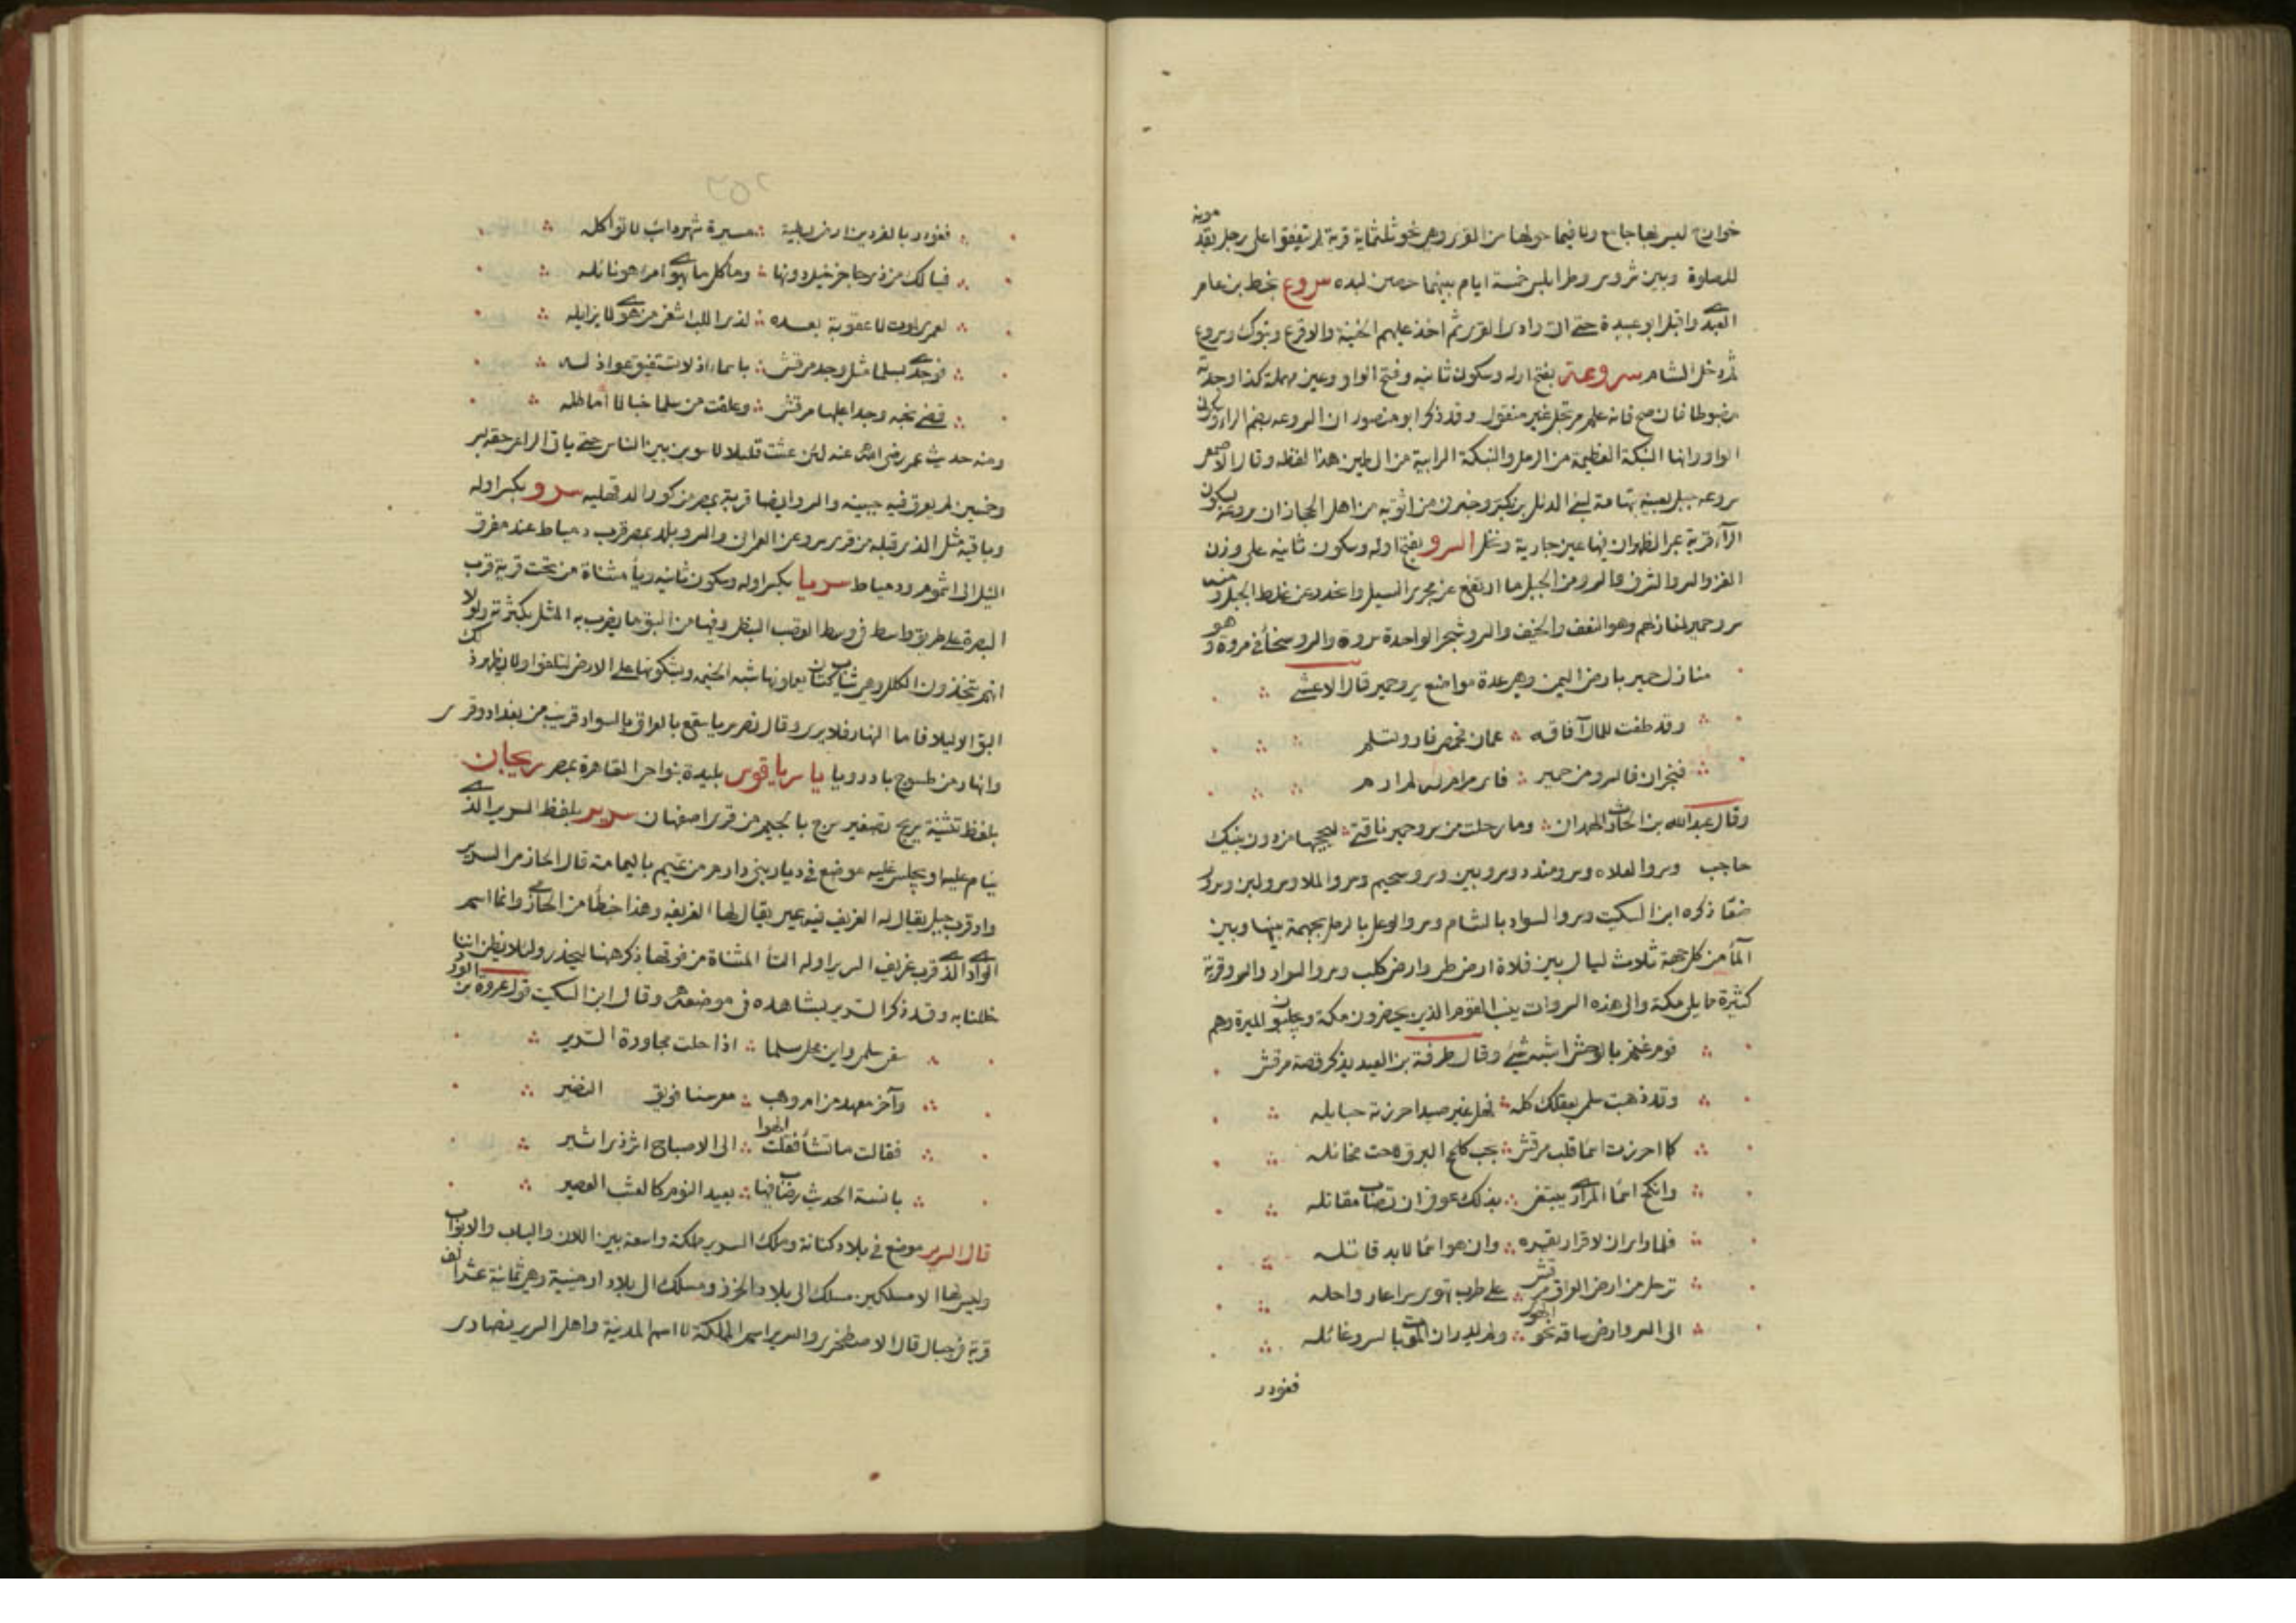 خوارج ليس بها جامع ولا فيما حولها من القرى وهي نحو ثلثماية قرية لم يتفقوا على رجل يقدمونه
للصلوة وبين شروس وطرابلس خمسة ايام بينهما حصن لبده سروع بخط بن عامر
العبدي واقبل ابو عبيدة حتى اتى وادى القرى ثم اخذ عليهم الجنينة والاقرع وتبوك وسروع
ثم دخل الشام سروعة بفتح اوله وسكون ثانيه وفتح الواو وعين مهملة كذا وجدته
مضبوطا فان صح فانه علم مرتجل غير منقول وقد ذكر ابو منصور ان الروعه بضم الراء وسكون
الواو وانها النبكة العظيمة من الرمل والنبكة الرابية من الطين هذا لفظه وقال الاصمعى
سروعه جبل بعينه بتهامة لبنى الدئل بن بكير وخبرنى من اثق به من اهل الحجاز ان سروعة بسكون
الرآء قرية بمر الظهران فيها عين جارية ونخل السرو بفتح اوله وسكون ثانيه على وزن
الغزو السرو الشرف والسرو من الجبل ما ارتفع عن مجرى السيل وانحدر عن غلظ الجبل ومنه
سرو حمير لمنازلهم وهو النعف والخيف والسرو شجر الواحدة سروة والسرو سخأ فى مروة وهو
منازل حمير بارض اليمن وهى عدة مواضع سرو حمير قال الاعشى
وقد طفت للمال آفاقه عمان فحمص فاورشلم
فنجران فالسرو من حمير فاى مرام له لم ارم
وقال عبدالله بن الحارث الهمدان وما رحلت من سرو حمير ناقتى ليحجبها من دون بيتك
حاجب وسرو العلاه وسرو مندد وسرو بين وسرو سحيم وسرو الملا وسرو لبن وسرو
ضنعا ذكره ابن السكيت وسرو السواد بالشام وسرو الوعل بالرمل بجهمة بينها وبين
المآ من كل جهة ثلاث ليال بين فلاة ارض طى وارض كلب وسرو السواد والسرو قرية
كثيرة مما يلى مكة والى هذه السروات ينسب القوم الذين يحضرون مكة ويجلبون الميرة وهم
قوم غنم بالوحش اشبه شئ وقال طرفة بن العبد يذكر قصة مرقش
وقد ذهبت سلمى بعقلك كله فهل غير صيد احرزته حبايله
كما احرزت اسما قلب مرقش بحب كلمح البرق لاحت مخائله
وانكح اسما المرادى يبتغى بذلك عوف ان تصاب مقاتله
فلما رأى ان لا قرار يقره وان هوى اسما لابد قاتله
ترحل من ارض العراق مرقش على طرب تهوى سراعا رواحله
الى السرو ارض ساقه نحو الهوى ولم يدر ان الموت بالسرو غائله
فغودر
٢٥٢
فغودر بالفردين ارض نطية مسيرة شهر دائب لا تواكله
فيا لك من ذى حاجة حيل دونها وما كل ما يهوى امرء هو نائله
لعمرى لموت لا عقوبة بعده لذى اللب اشفى من هوى لا يزايله
فوجدى بسلمى مثل وجد مرقش باسماء اذ لا تستفيق عواذله
قضى نحبه وجدا عليها مرقش وعلقت من سلمى خبالا أماطله
ومنه حديث عمر رضى الله عنه لئن عشت قليلا لاسوين بين الناس حتى ياتى الراعى حقه بسرو
وحمير لم يعرق فيه جبينه والسرو ايضا قرية بمصر من كورة الدقهليه سرو بكسر اوله
وباقيه مثل الذى قبله من قرى مرو عن العمرانى والسرو بلد بمصر قرب دمياط عند مفرق
النيل الى اشموم ودمياط سريا بكسر اوله وسكون ثانيه وياء مثناة من تحت قرية قرب
البصرة على طريق واسط فى وسط القصب النبطى وفيها من البق ما يضرب به المثل بكثرته ولولا
انهم يتخذون الكلل وهى ثياب كتان يعملونها شبه الخيم ويشكونها على الارض لتلفوا ولا يظهر ذلك
البق الا ليلا فاما النهار فلا يرى وقال نصر سريا صقع بالعراق بالسواد قريب من بغداد وقرى
وانهار من طسوج بادوريا يا سرياقوس بليدة بنواحى القاهرة بمصر سريجان
بلفظ تثنية سريج تصغير سرج بالجيم من قرى اصفهان سرير بلفظ السرير الذى
ينام عليه او يجلس عليه موضع فى ديار بنى دارم من تميم باليمامة قال الحازمى السرير
واد قرب جبل يقال له الغريف فيه عين يقال لها الغريفه وهذا خطأ من الحازمى وانما اسم
الوادى الذى قرب غريف التسرير اوله التأ المثناة من فوقها ذكرهنا ليحذر ولئلا يظن اننا
خللنا به وقد ذكر التسرير بشاهده فى موضعه وقال ابن السكيت قول عروة بن الورد
سقى سلمى واين محل سلمى اذا حلت مجاورة السرير
وآخر معهد من ام وهب معرسنا فويق النضير
فقالت ما تشأ فقلت الهو الى الاصباح اثر ذى اثير
بانسة الحديث رضاب فيها بعيد النوم كالعنب العصير
قال السرير موضع فى بلاد كنانة وملك السرير مملكة واسعة بين اللان والباب والابواب
وليس لها الا مسلكين مسلك الى بلاد الخزر ومسلك الى بلاد ارمنيية وهى ثمانية عشر الف
قرية فى جبال قال الاصطخرى والسرير اسم المملكة لا اسم المدينة واهل السرير نصارى